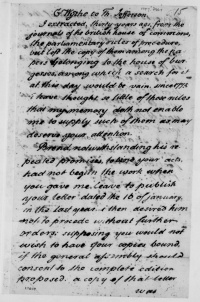 G. Wythe to Th. Jefferson. 15
I extracted, thirty years ago, from the
journals of the british house of commons,
the parliamentary rules of procedure,
but left the copy of them among the pa-
pers belonging to the house of bur-
gesses, among which a search for it
at this day would be vain. since 1775
i have thought so little of those rules
that my memory doth not enable
me to supply such of them as may
deserve your attention.
notwithstanding his re-
peated promises, to send your acts,
had not begun the work when
you gave me leave to publish
your letter dated the 16 of january,
in the last year. i then desired him
not to proceed without further
orders; supposing you would not
wish to have four copies bound,
if the general assembly should
consent to the complete edition
proposed. a copy of that letter
was